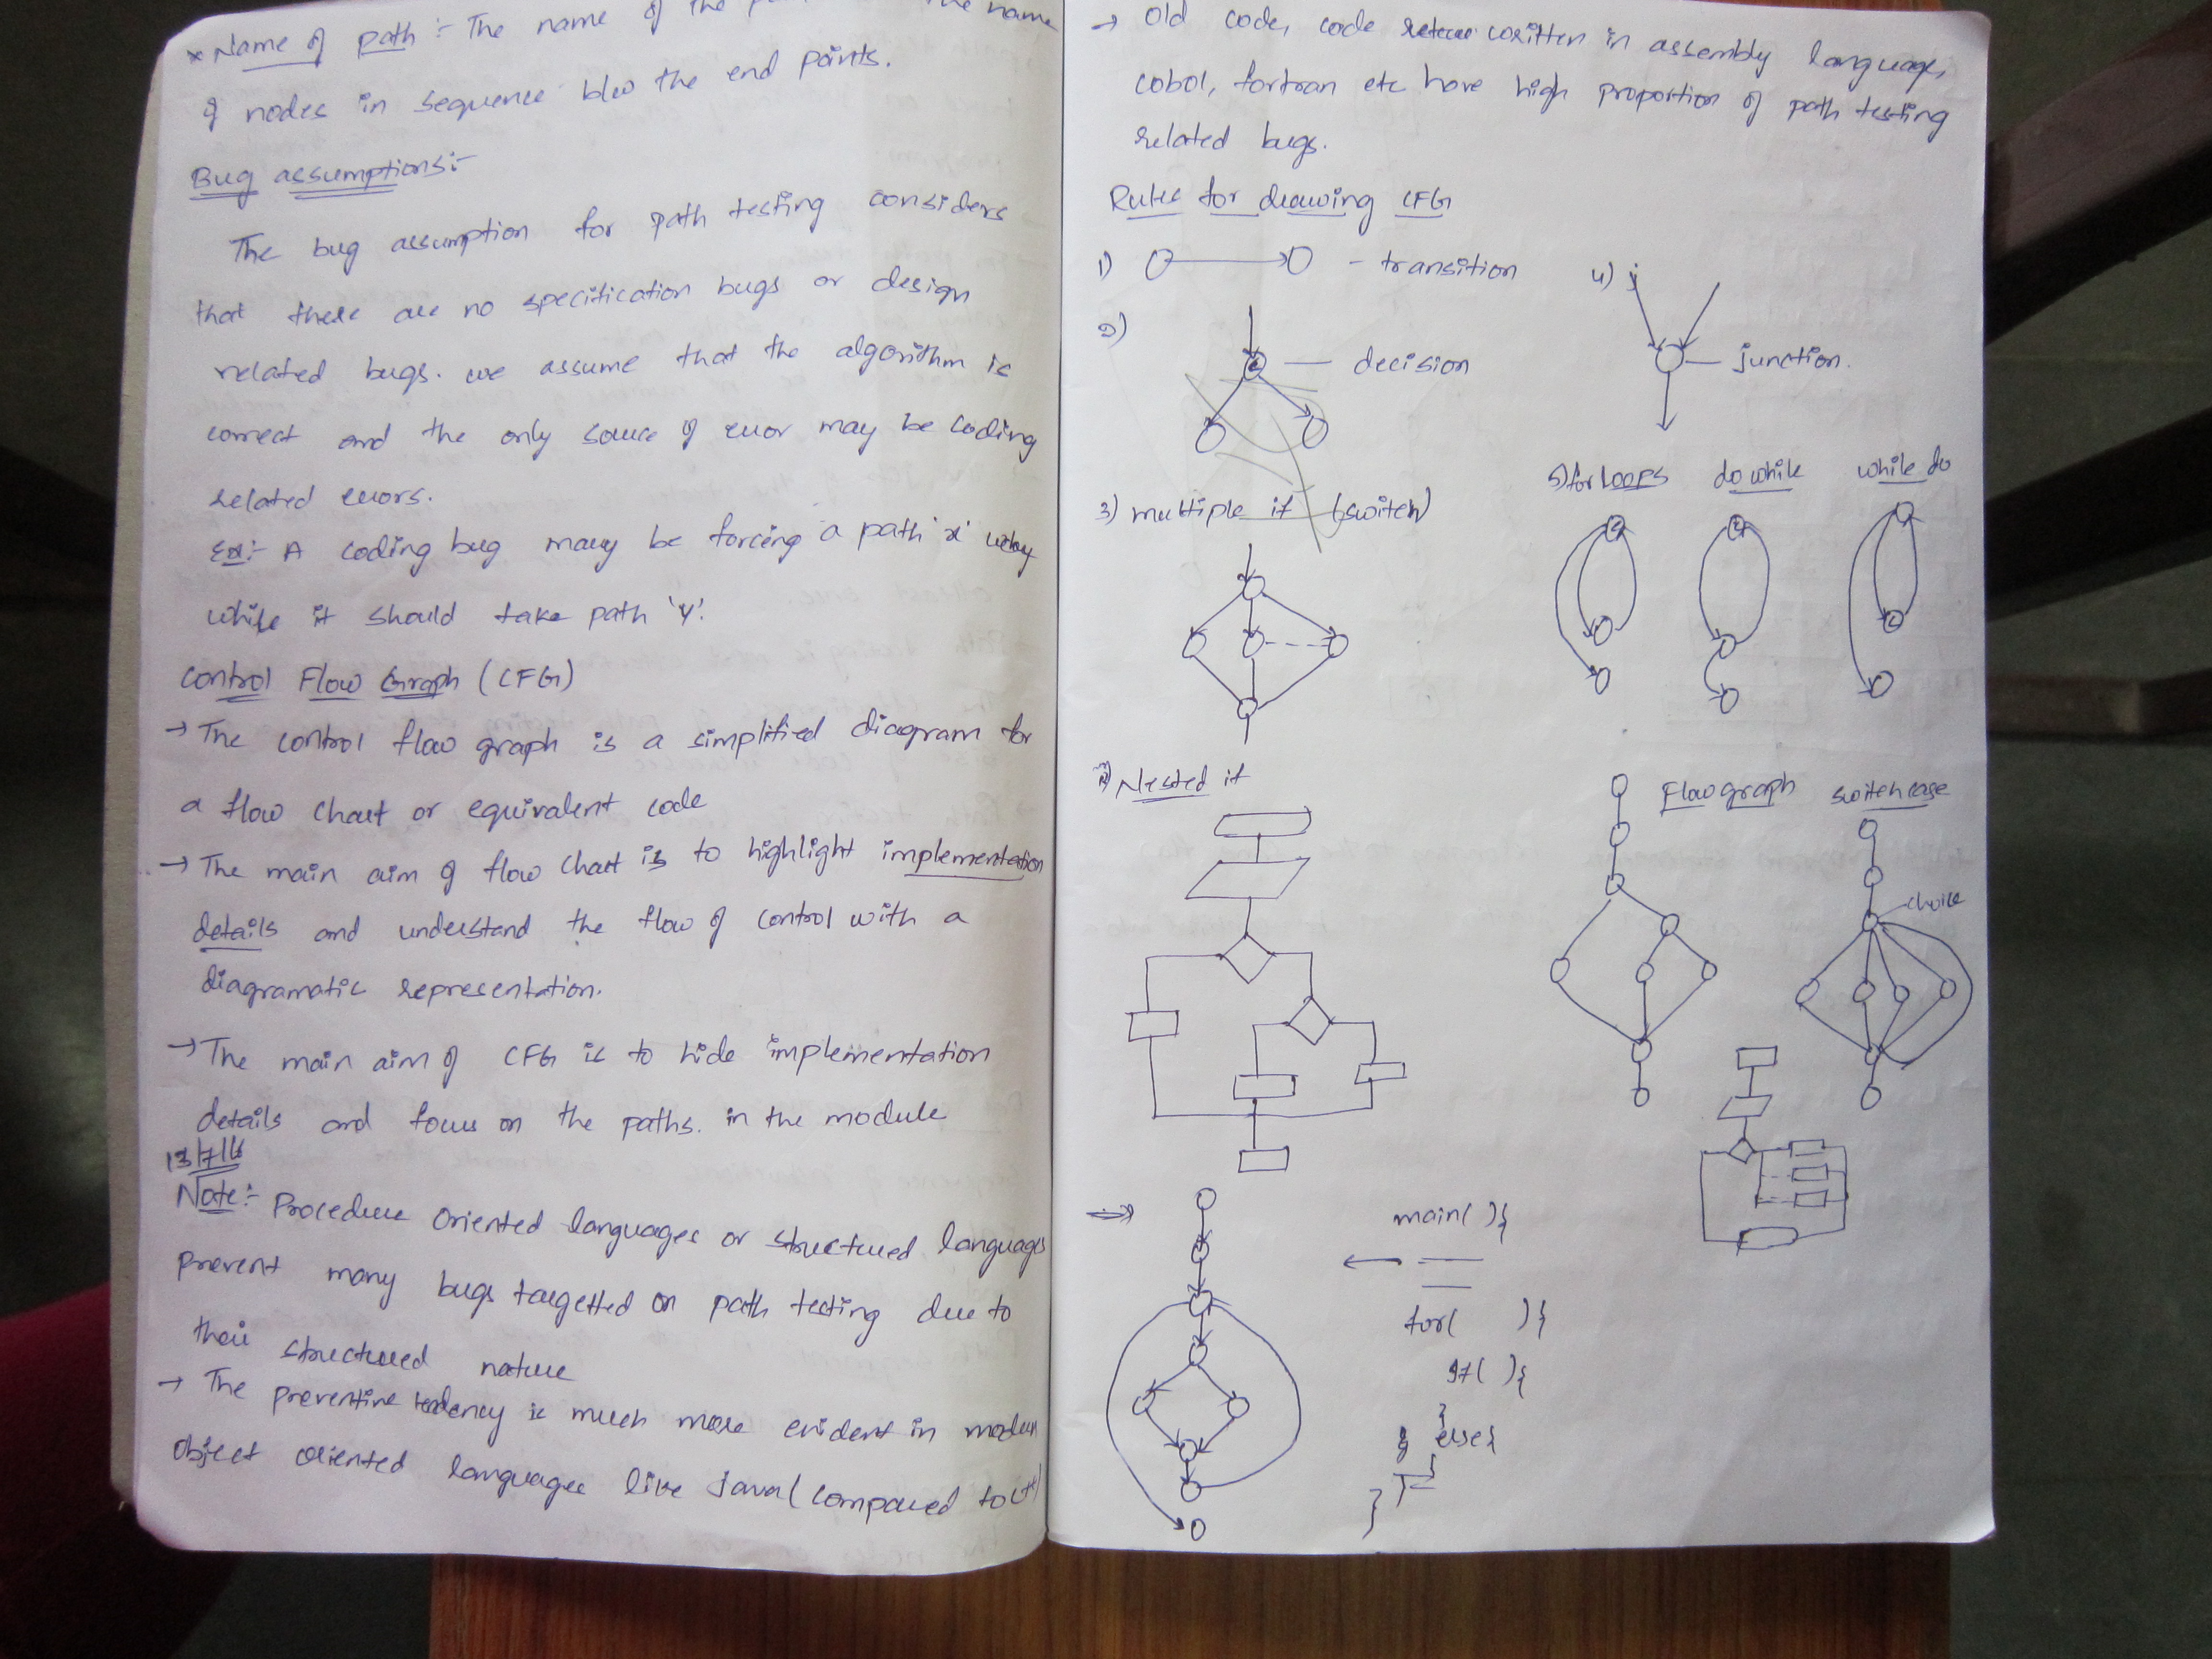 * Name of path :- The name of the name
of nodes in sequence b/w the end points.
Bug assumptions:-
The bug assumption for path testing considers
that there are no specification bugs or design
related bugs. we assume that the algorithm is
correct and the only source of error may be coding
related errors.
Ex:- A coding bug may be forcing a path 'x'
while it should take path 'y'.
Control Flow Graph (CFG)
→ The control flow graph is a simplified diagram for
a flow chart or equivalent code
→ The main aim of flow chart is to highlight implementation
details and understand the flow of control with a
diagramatic representation.
→ The main aim of CFG is to hide implementation
details and focus on the paths. in the module
13/7/16
Note:- Procedure Oriented languages or structured languages
prevent many bugs targetted on path testing due to
their structured nature
→ The preventive tedency is much more evident in modern
object oriented language like Java (compared to it)
→ Old code, code written in assembly language,
cobol, fortran etc have high proportion of path testing
related bugs.
Rules for drawing CFG
1) - transition
2) - decision
3) multiple if (switch)
4) - junction.
5) for loops do while while do
Nested if
Flow graph switch case
choice
main(){
for( ){
if( ){
}
else{
}
}